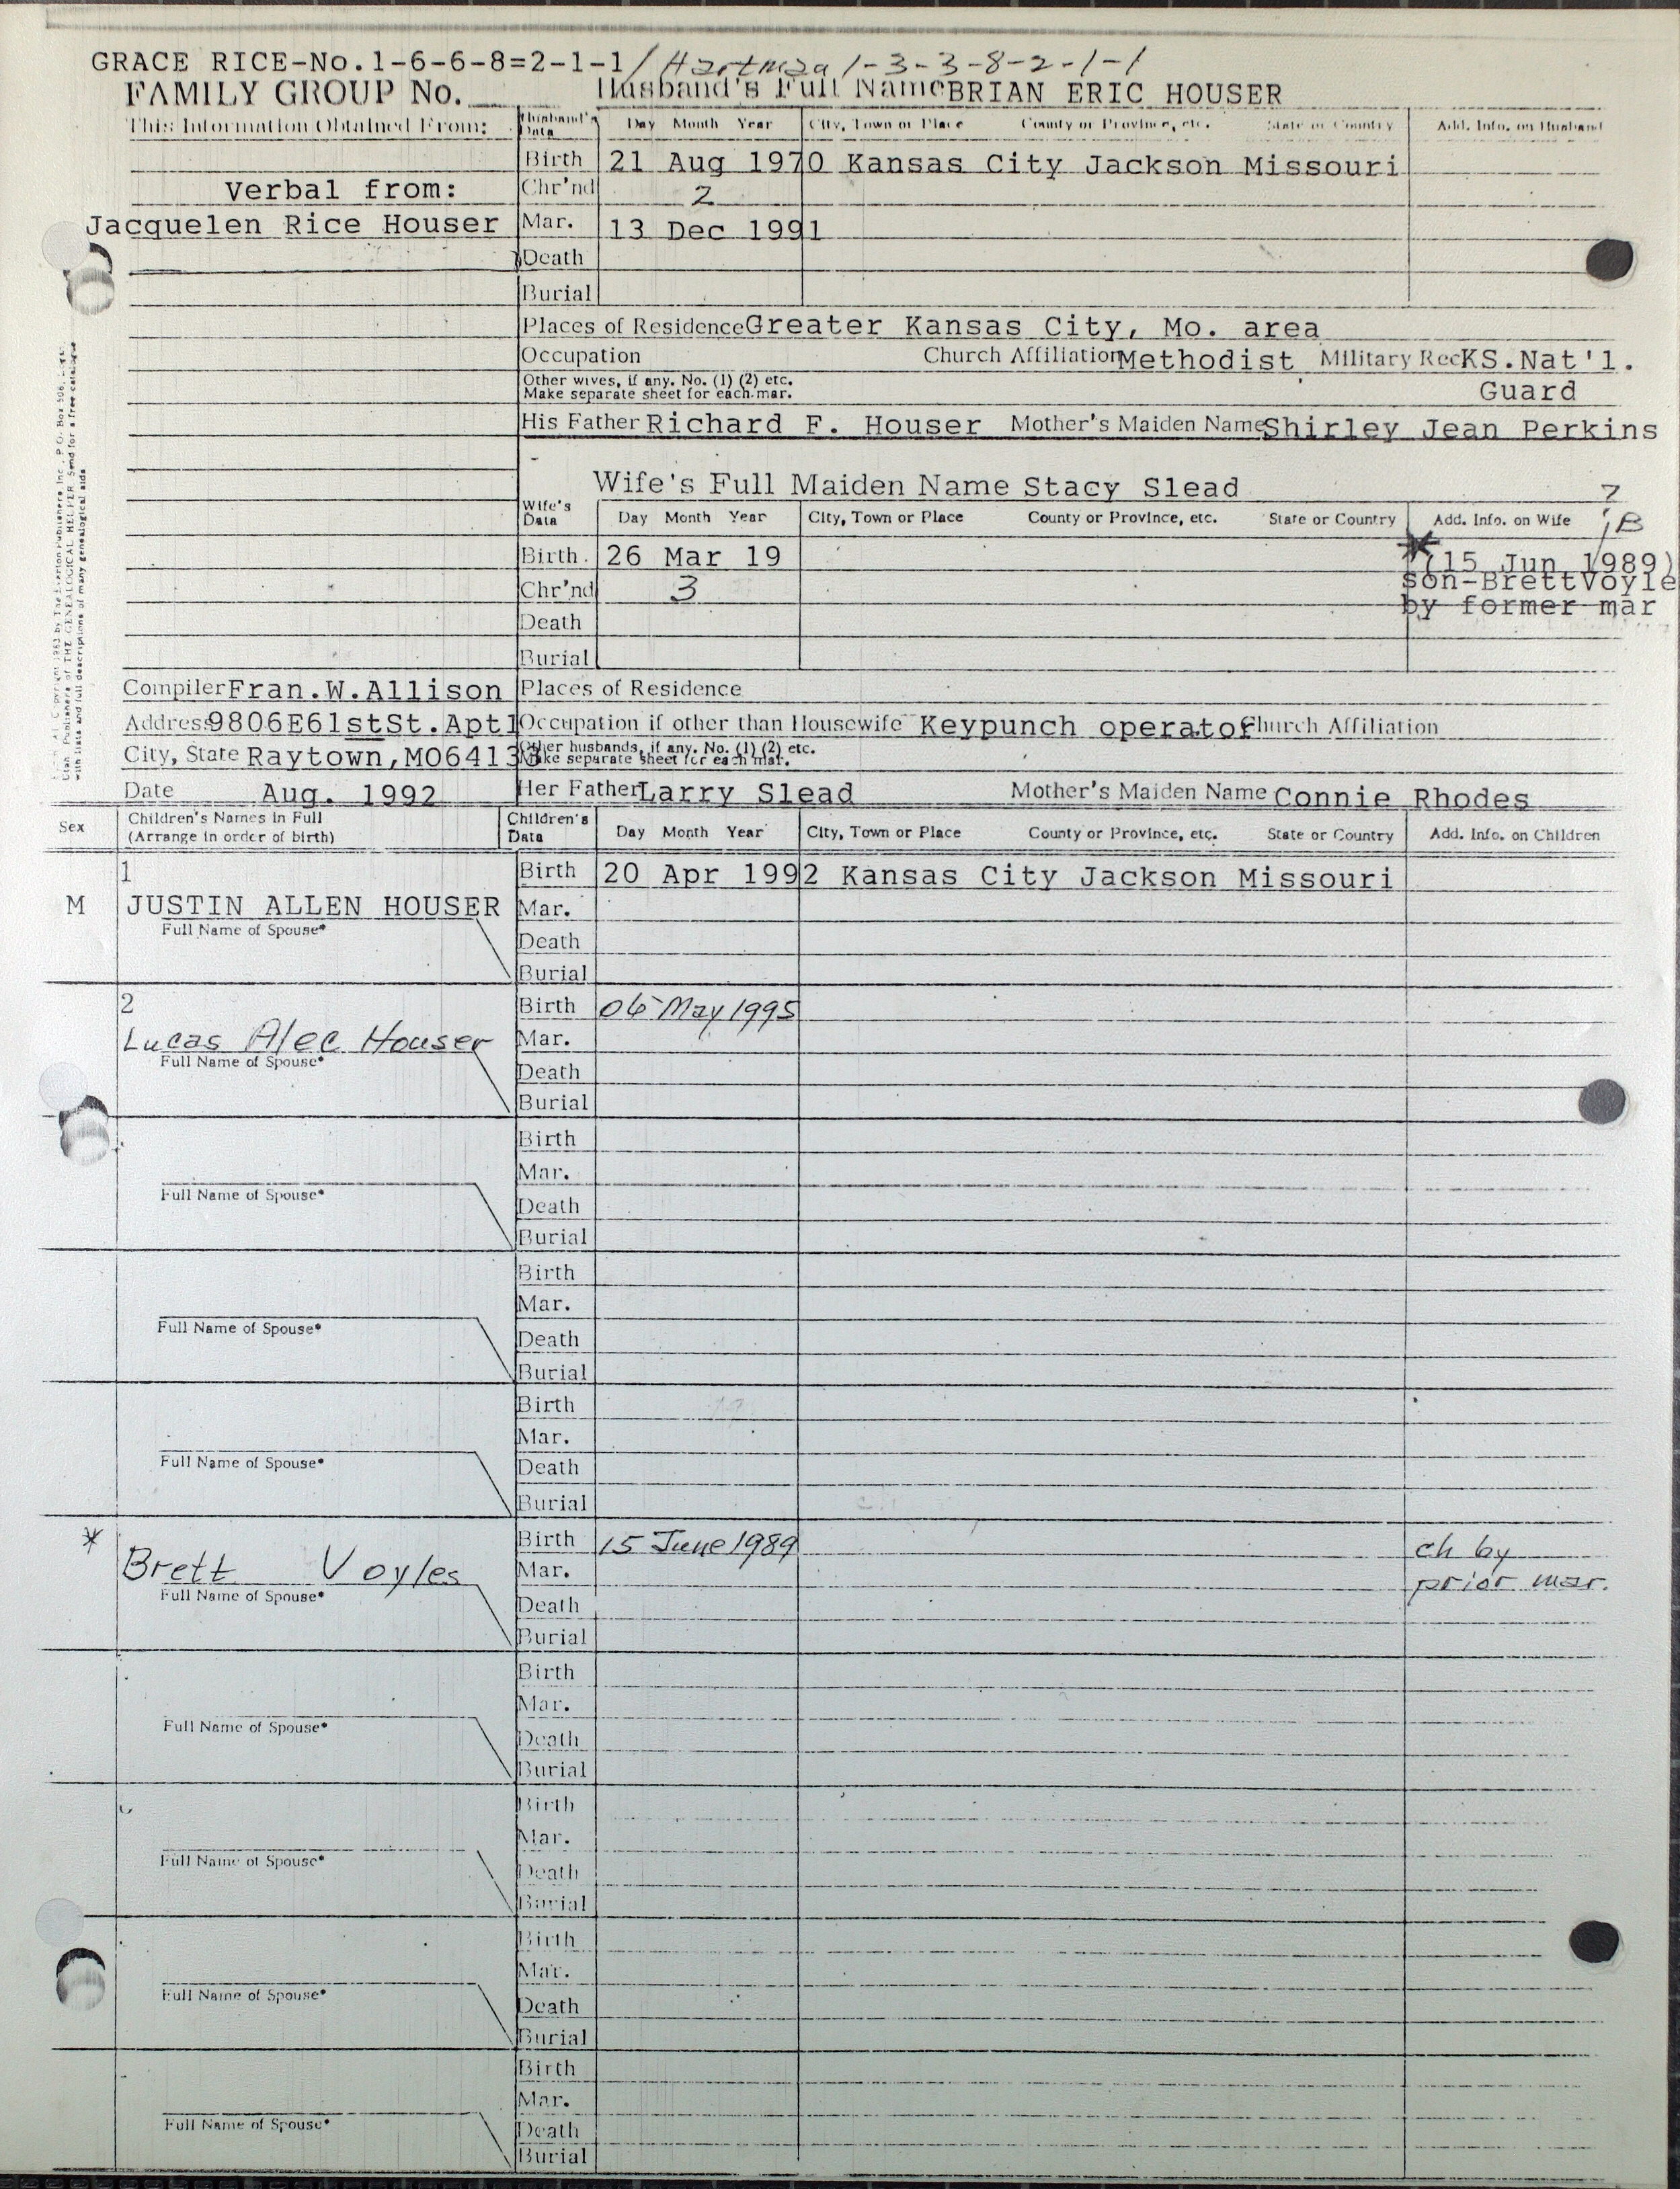 GRACE RICE-No.1-6-6-8=2-1-1/Hartman 1-3-3-8-2-1-1
FAMILY GROUP No. Husband's Full Name BRIAN ERIC HOUSER
This Information Obtained From: Husband's Data Day Month Year City, Town or Place County or Province, etc. State or Country Add. Info. on Husband
Birth 21 Aug 1970 Kansas City Jackson Missouri
Verbal from: Chr'nd 2
Jacquelen Rice Houser Mar. 13 Dec 1991
Death
Burial
Places of Residence Greater Kansas City, Mo. area
Occupation Church Affiliation Methodist Military Rec KS.Nat'l.
Other wives, if any. No. (1) (2) etc.
Make separate sheet for each mar. Guard
His Father Richard F. Houser Mother's Maiden Name Shirley Jean Perkins
Wife's Full Maiden Name Stacy Slead
Wife's Data Day Month Year City, Town or Place County or Province, etc. State or Country Add. Info. on Wife
Birth 26 Mar 19 *(15 Jun 1989)
Chr'nd 3 son-BrettVoyle
by former mar
Death
Burial
Compiler Fran.W.Allison Places of Residence
Address 9806E61stSt.Apt1 Occupation if other than Housewife Keypunch operator Church Affiliation
City, State Raytown,MO64133 Other husbands, if any. No. (1) (2) etc.
Make separate sheet for each mar.
Date Aug. 1992 Her Father Larry Slead Mother's Maiden Name Connie Rhodes
Sex Children's Names in Full (Arrange in order of birth) Children's Data Day Month Year City, Town or Place County or Province, etc. State or Country Add. Info. on Children
1 Birth 20 Apr 1992 Kansas City Jackson Missouri
M JUSTIN ALLEN HOUSER Mar.
Full Name of Spouse*
Death
Burial
2 Birth 06 May 1995
Lucas Alec Houser Mar.
Full Name of Spouse*
Death
Burial
Birth
Mar.
Full Name of Spouse*
Death
Burial
Birth
Mar.
Full Name of Spouse*
Death
Burial
Birth
Mar.
Full Name of Spouse*
Death
Burial
* Birth 15 June 1989 ch by
Brett Voyles Mar. prior mar.
Full Name of Spouse*
Death
Burial
Birth
Mar.
Full Name of Spouse*
Death
Burial
Birth
Mar.
Full Name of Spouse*
Death
Burial
Birth
Mar.
Full Name of Spouse*
Death
Burial
Birth
Mar.
Full Name of Spouse*
Death
Burial